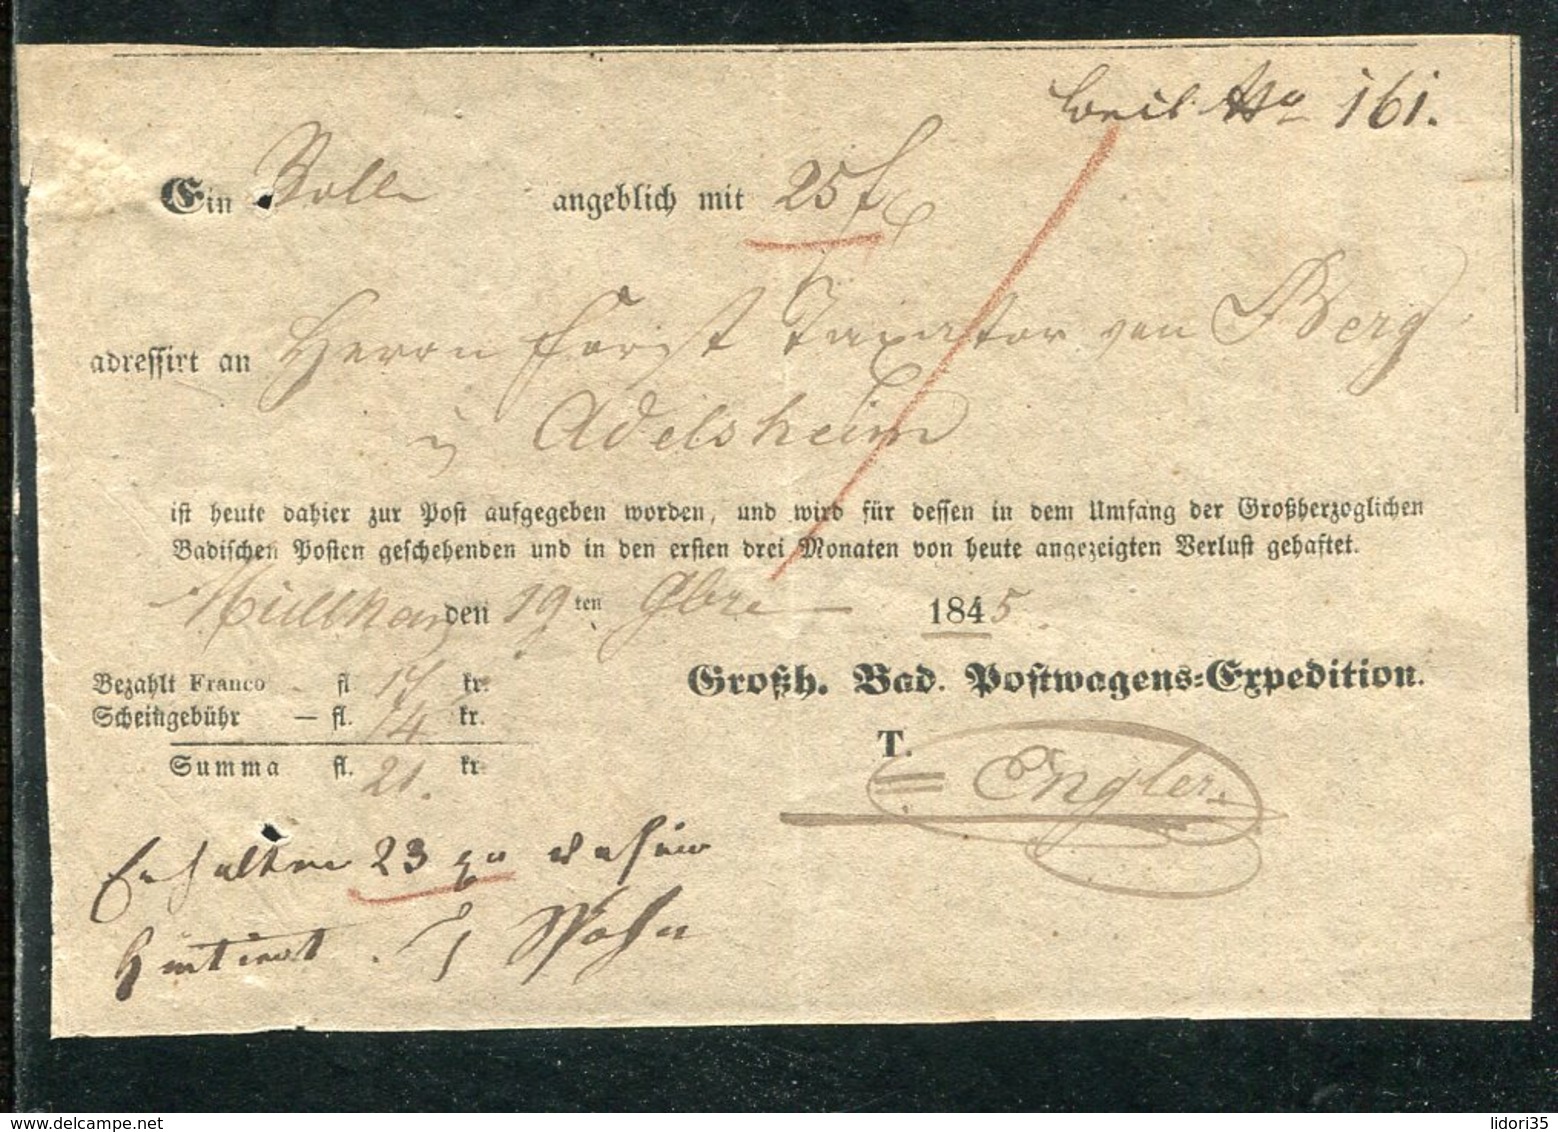 Beil. No 161.
Ein Rolle angeblich mit 25 f
adressirt an Herrn Forst Taxator von Berg
Adelsheim
ist heute dahier zur Post aufgegeben worden, und wird für dessen in dem Umfang der Großherzoglichen
Badischen Posten geschehenden und in den ersten drei Monaten von heute angezeigten Verlust gehaftet.
den 19ten 9bre 1845.
Bezahlt Franco fl 17 kr.
Scheingebühr — fl. 4 kr.
Summa fl. 21. kr
Großh. Bad. Postwagens-Expedition.
T. Engler.
Erhalten 23
lidori35